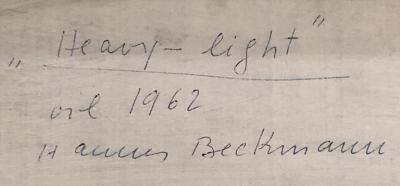 „Heavy – light”
oil 1962
Hannes Beckmann